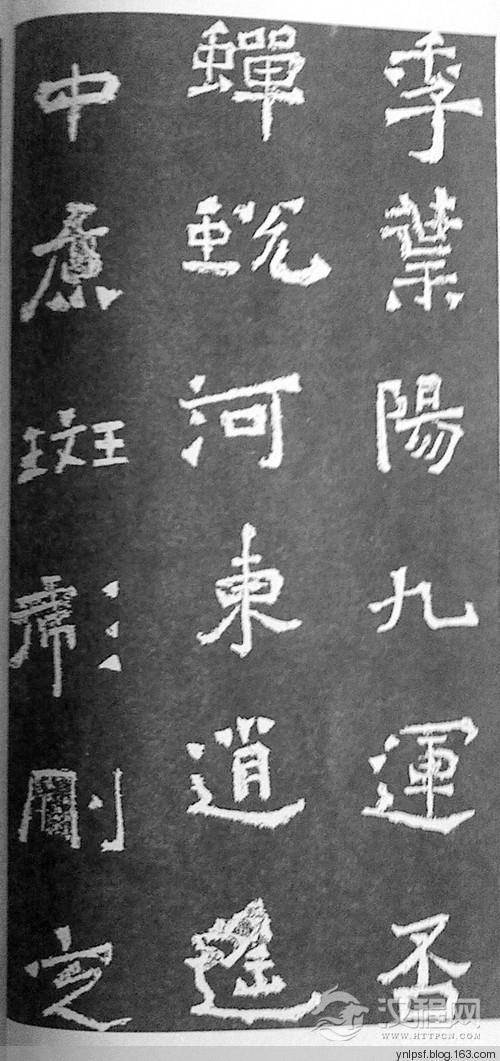 季葉陽九運否
蟬蛻河東逍遙
中原斑彪刪定
汉程网
WWW.HTTPCN.COM
ynlpsf.blog.163.com